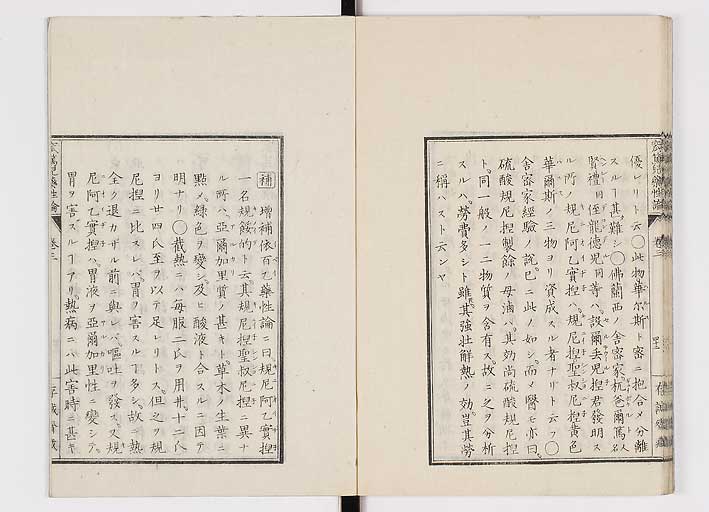 優レリト云〇此物華尔斯ト密ニ抱合メ分離
スルヿ甚難シ〇佛蘭西ノ舎密家杭爸爾篤人名
賢禮日侄龍德児同等ハ設爾丢児捏君發明ス
ル所ノ規尼阿乙實捏ハ規尼捏聖叔尼捏黄色
華爾斯ノ三物ヨリ資成スル者ナリト云フ〇
舎密家經驗ノ説已ニ此ノ如シ而メ醫モ亦曰
硫酸規尼捏製餘ノ母滷ハ其効尚硫酸規尼捏
ト同一般ノ一二物質ヲ含有ス故ニ之ヲ分析
スルハ勞費多シト雖其強壮解熱ノ効豈其勞
ニ稱ハスト云ンヤ
補 増補依百乙藥性論ニ曰規尼阿乙實捏
一名規餒的ト云其規尼捏聖叔尼捏ニ異ナ
ル所ハ亞爾加里質ノ甚キト草木ノ生葉ニ
點メ綠色ヲ變シ及ヒ酸液ト合スルニ因テ
明ナリ〇截熱ニハ毎服二氏ヲ用井十二氏
ヨリ廿四氏至ヲ以テ足レリトス但之ヲ規
尼捏ニ比スレハ胃ヲ害スルヿ多シ故ニ熱
全ク退カザル前ニ與レハ嘔吐ヲ發ス又規
尼阿乙實捏ハ胃液ヲ亞爾加里性ニ變シテ
胃ヲ害スルヿアリ熱病ニハ此害時ニ甚キ
藥性論 卷三